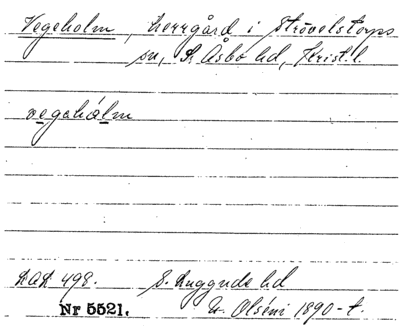 Vegeholm, herrgård i Strövelstorps
sn, S. Åsbo hd, Krist. l.
vegahålm
DAL 498. S. Luggude hd
Nr 5521. N. Olséni 1890-t.